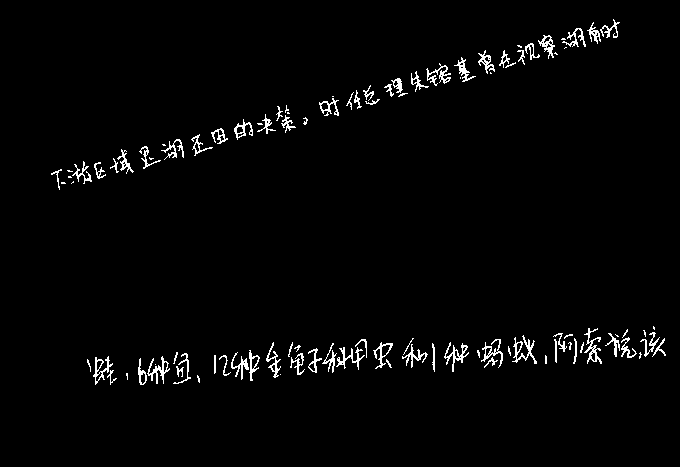 下游区域退湖还田的决策。时任总理朱镕基曾在视察湖南时
蛙、6种鱼、12种金龟子科甲虫和1种蚂蚁,阿索说,该